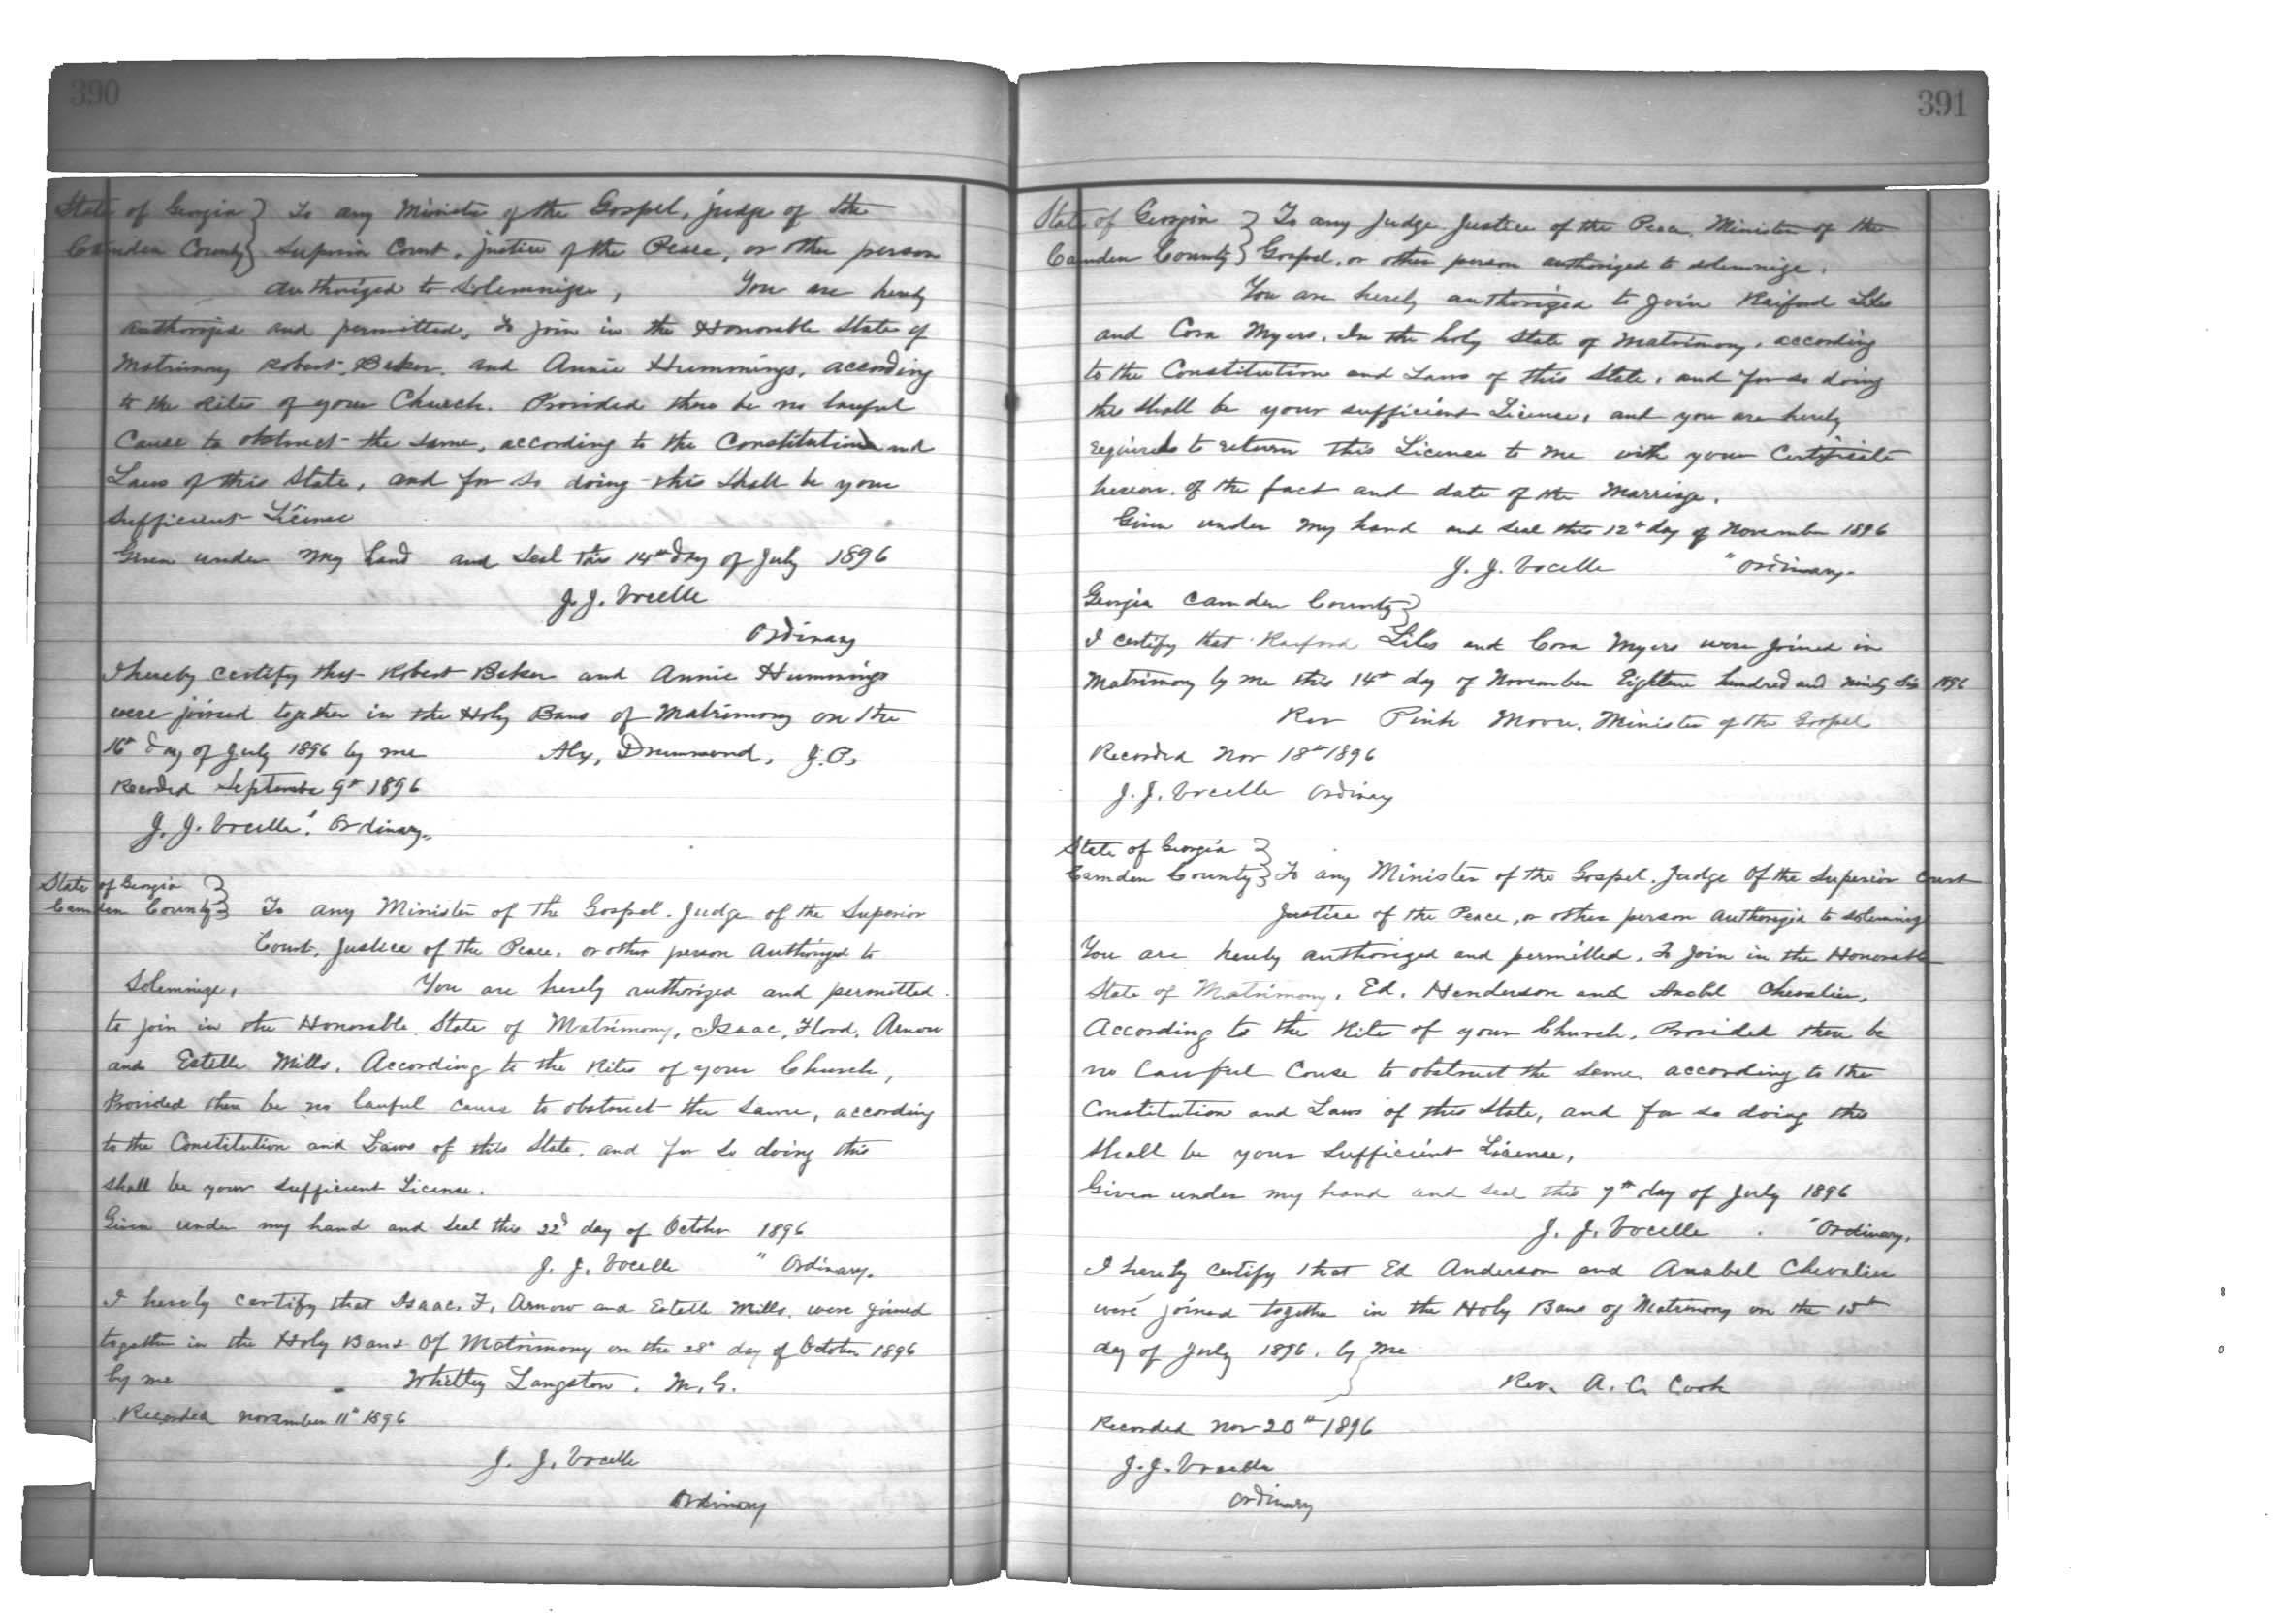 390
State of Georgia } To any Minister of the Gospel, judge of the
Camden County } Superior Court, justice of the Peace, or other person
authorized to Solemnize, You are hereby
authorized and permitted, To join in the Honorable State of
Matrimony Robert Baker and Annie Hummings, according
to the Rites of your Church. Provided there be no lawful
Cause to obstruct the same, according to the Constitution and
Laws of this State, and for so doing this shall be your
sufficient License
Given under my hand and Seal this 14th day of July 1896
J. J. Vocelle
Ordinary
I hereby certify that Robert Baker and Annie Hummings
were joined together in the Holy Bans of Matrimony on the
16th day of July 1896 by me Alx, Drummond, J.P.
Recorded September 9th 1896
J. J. Vocelle, Ordinary.
State of Georgia }
Camden County } To any Minister of the Gospel. Judge of the Superior
Court, Justice of the Peace, or other person authorized to
Solemnize, You are hereby authorized and permitted
to join in the Honorable State of Matrimony, Isaac, Flood, Arnow
and Estelle Mills. According to the Rites of your Church,
Provided there be no lawful cause to obstruct the same, according
to the Constitution and Laws of this State. and for so doing this
shall be your sufficient License.
Given under my hand and seal this 22d day of October 1896
J. J. Vocelle " Ordinary.
I hereby certify that Isaac. F. Arnow and Estelle Mills. were joined
together in the Holy Bans Of Matrimony on the 28th day of October 1896
by me Whittey Langston. M. G.
Recorded November 11th 1896
J. J. Vocelle
Ordinary
391
State of Georgia } To any Judge Justice of the Peace. Minister of the
Camden County } Gospel, or other person authorized to solemnize.
You are hereby authorized to join Raiford Liles
and Cora Myers. In the holy State of Matrimony, according
to the Constitution and Laws of this State, and for so doing
this shall be your sufficient License, and you are hereby
required to return this License to me with your Certificate
hereon. of the fact and date of the Marriage.
Given under my hand and seal this 12th day of November 1896
J. J. Vocelle " Ordinary.
Georgia Camden County }
I certify that Raiford Liles and Cora Myers were joined in
Matrimony by me this 14th day of November Eighteen hundred and ninety Six 1896
Rev Pink Moore. Minister of the Gospel
Recorded Nov 18th 1896
J. J. Vocelle Ordinary
State of Georgia }
Camden County } To any Minister of the Gospel. Judge Of the Superior Court
Justice of the Peace, or other person authorized to solemnize
You are hereby authorized and permitted. To join in the Honorable
State of Matrimony. Ed. Henderson and Anabel Chevalier,
According to the Rites of your Church. Provided there be
no lawful Cause to obstruct the same, according to the
Constitution and Laws of this State, and for so doing this
shall be your sufficient License,
Given under my hand and seal this 7th day of July 1896
J. J. Vocelle " Ordinary.
I hereby certify that Ed Anderson and Anabel Chevalier
were joined together in the Holy Bans of Matrimony on the 15th
day of July 1896. by me
Rev. A. C. Cook
Recorded Nov 20th 1896
J. J. Vocelle
Ordinary